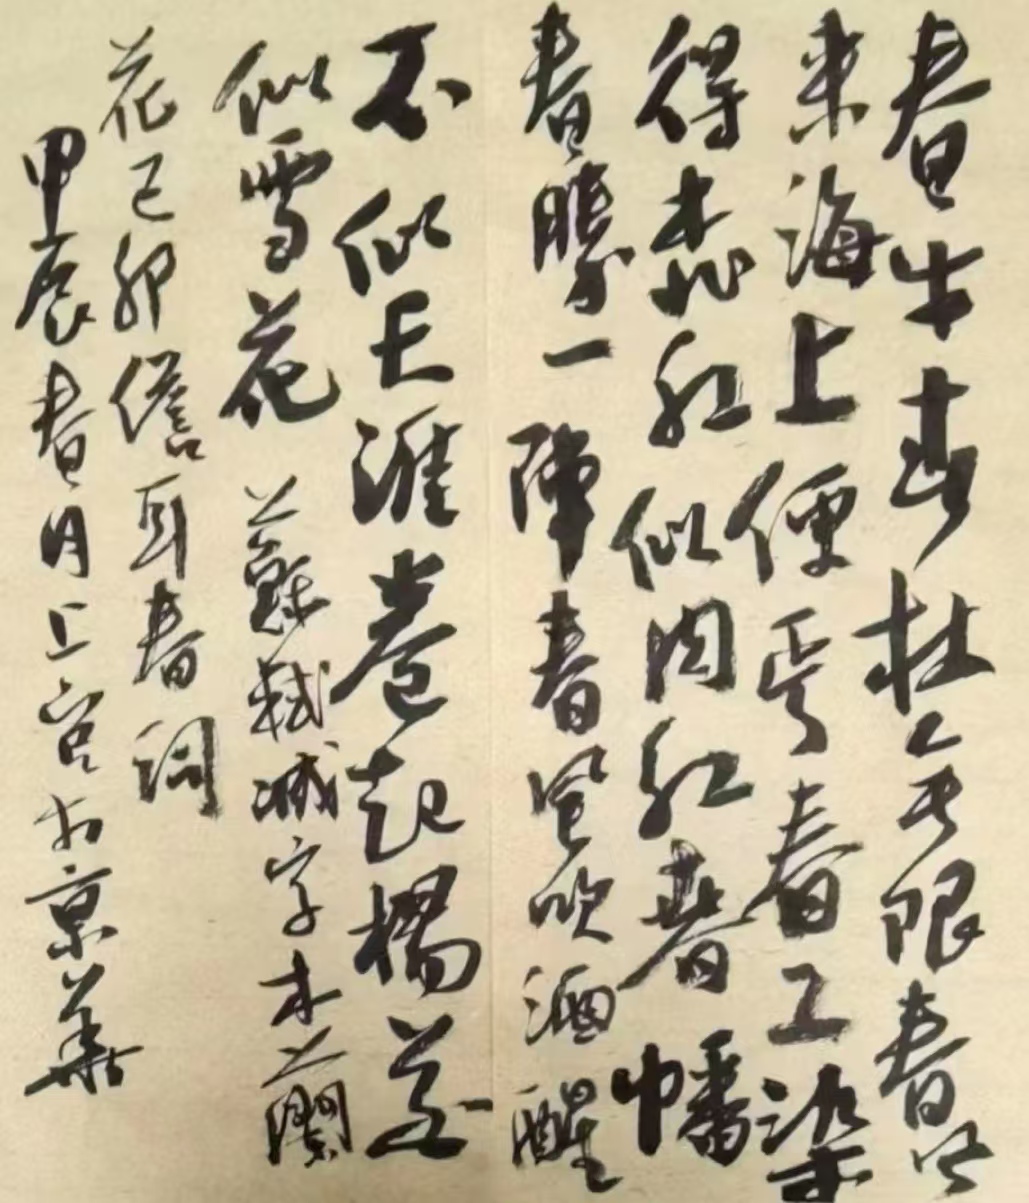 春牛春杖无限春风
来海上便丐春工染
得桃红似肉红春幡
春勝一陣春风吹酒醒
不似天涯卷起楊花
似雪花 蘇軾減字木蘭
花己卯儋耳春词
甲辰春月上官於京華